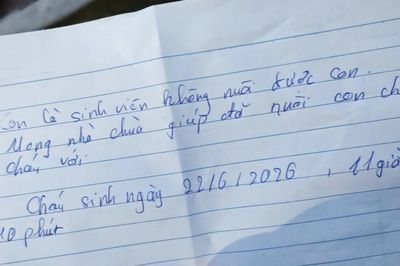 Con là sinh viên không nuôi được con.
Mong nhà chùa giúp đỡ nuôi con ch
cháu với.
Cháu sinh ngày 22/6/2026, 11 giờ
10 phút